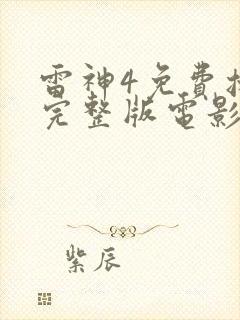 雷神4免費
完整版電影
紫辰